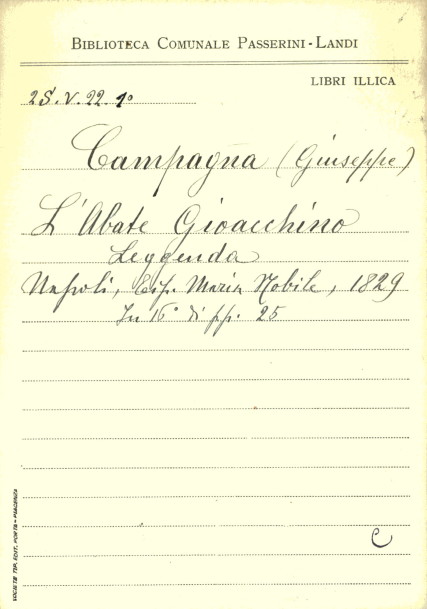 BIBLIOTECA COMUNALE PASSERINI-LANDI
LIBRI ILLICA
2S.V.22.1º
Campagna (Giuseppe)
L'Abate Gioacchino
Leggenda
Napoli, Maria Nobile, 1829
In 16º di pp. 25
C
SOCIETÀ TIP. EDIT. PORTA - PIACENZA